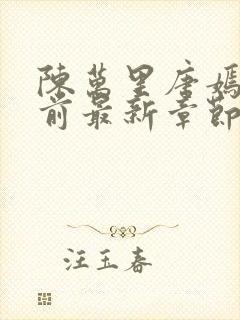 陳萬里唐嫣
前最新章節
汪玉春